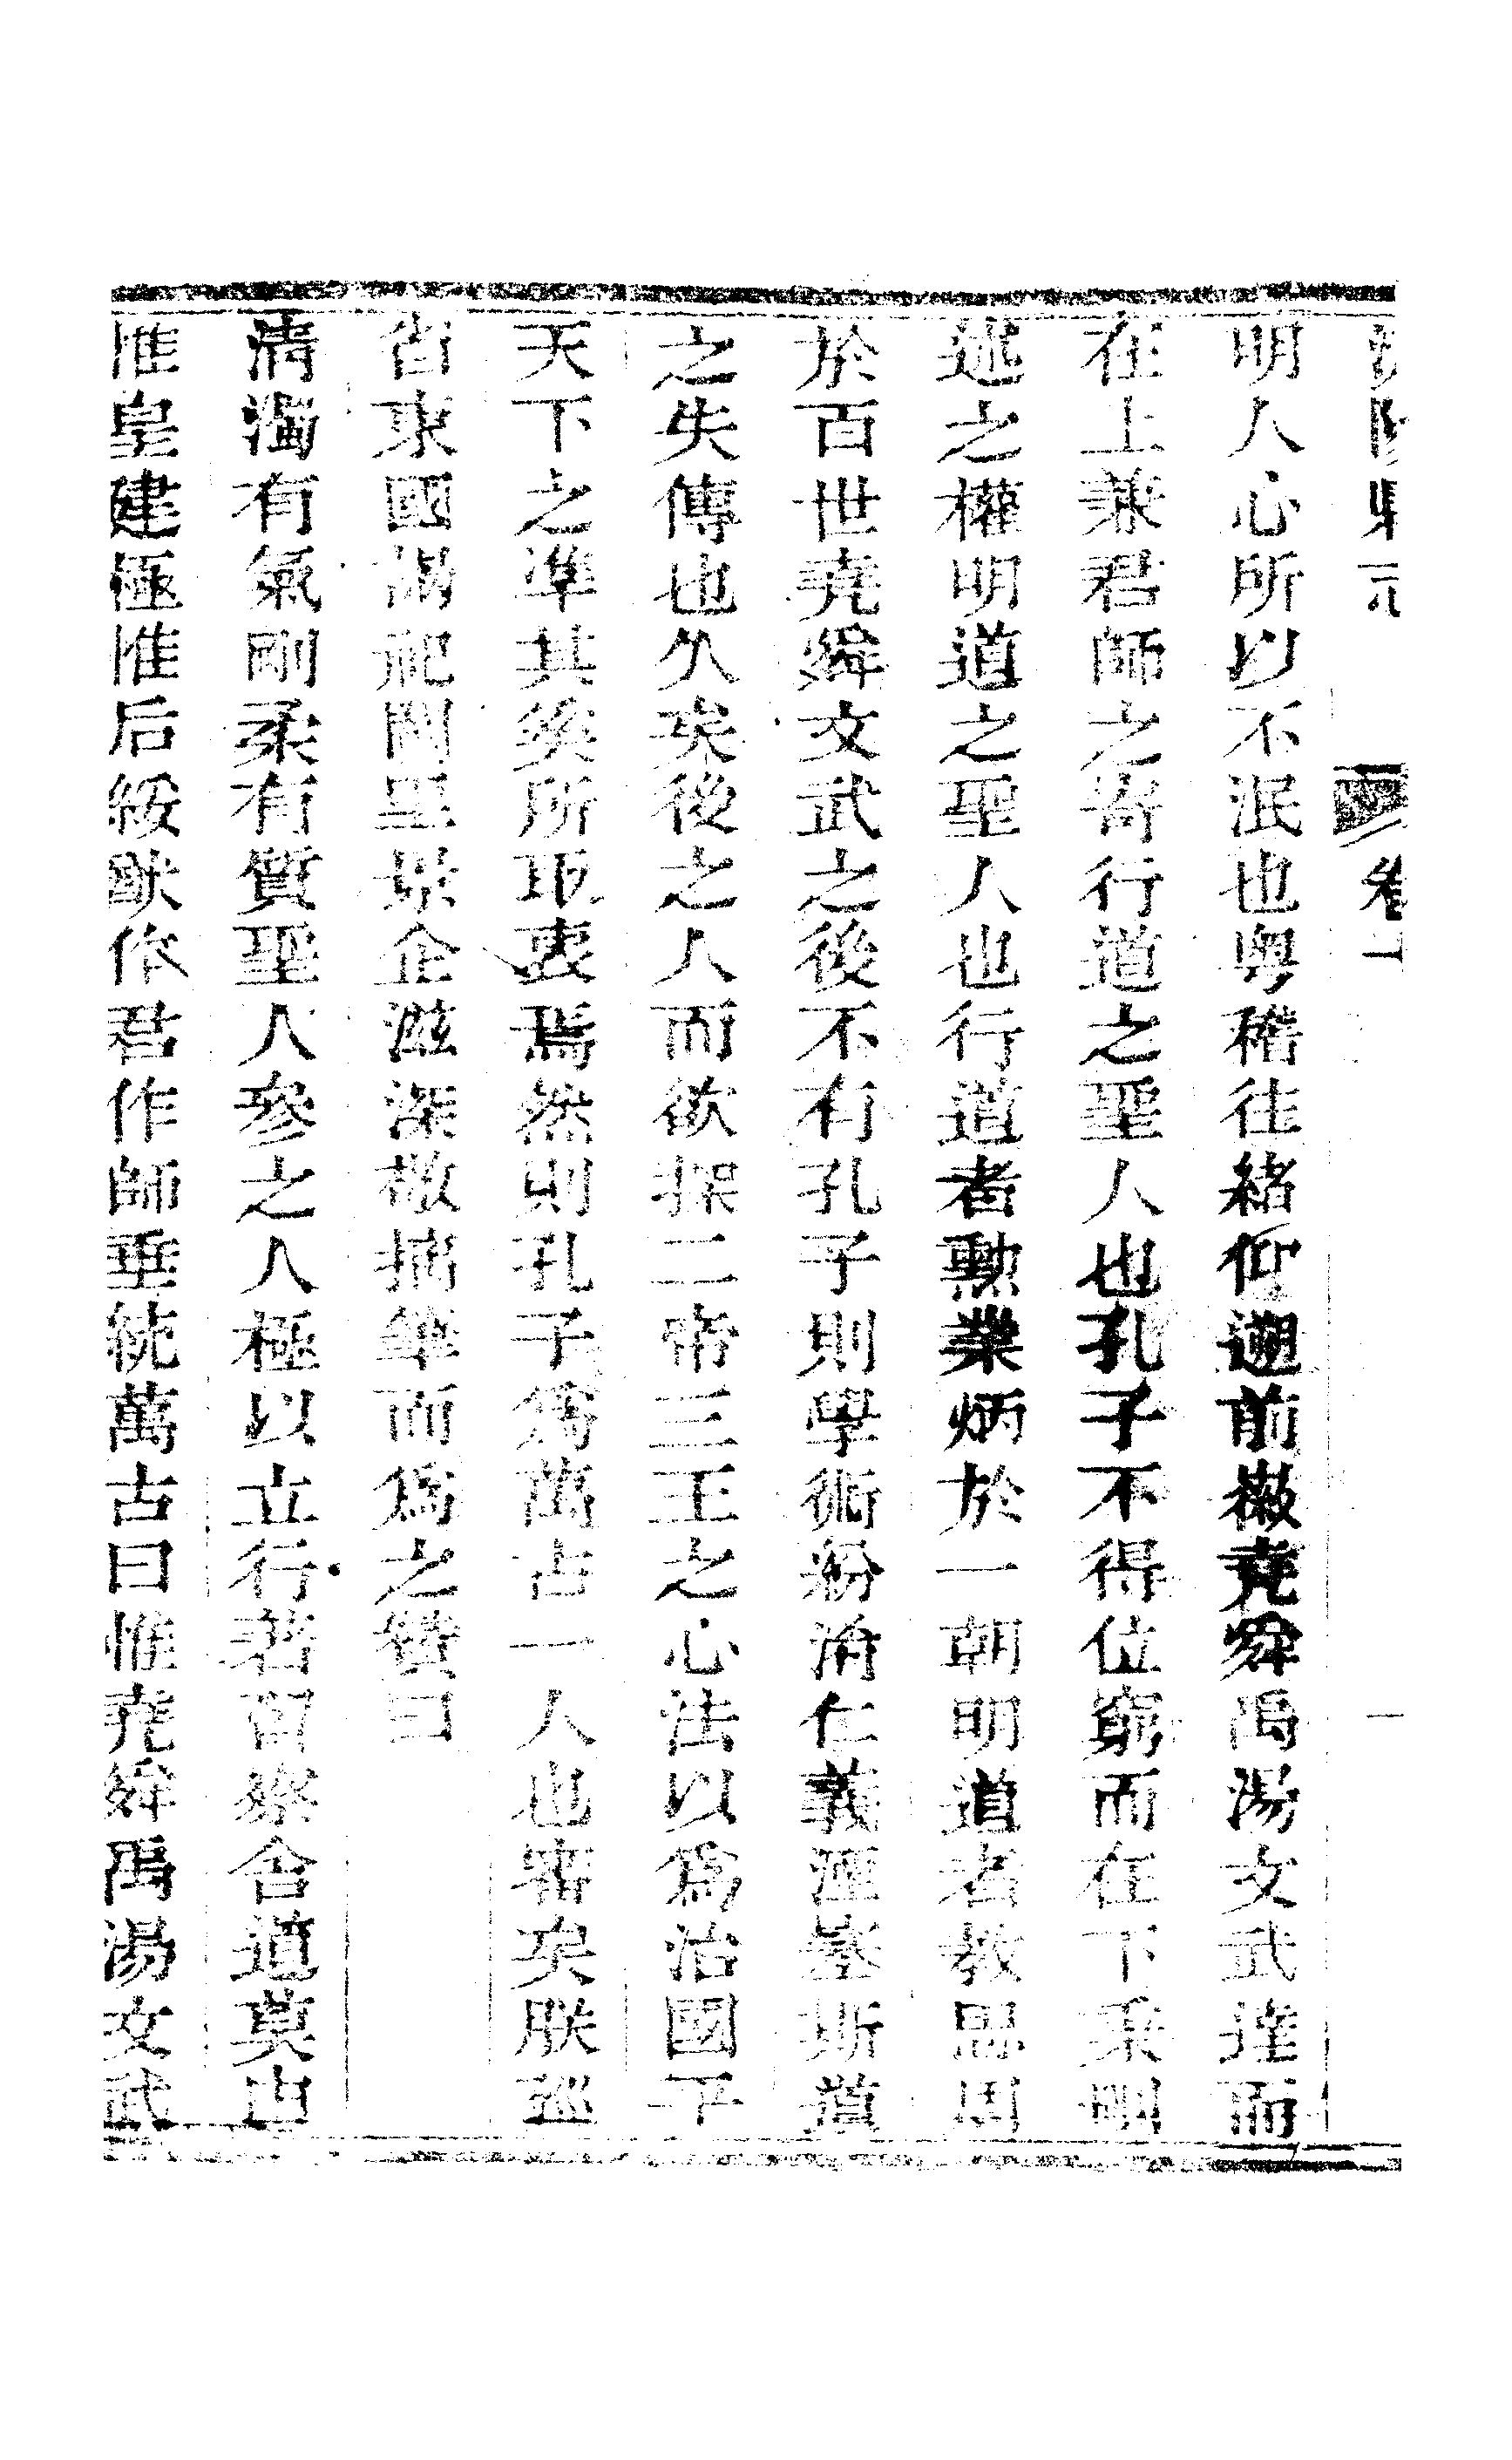 卷一
一
明人心所以不泯也粤稽往緒仰遡前徽堯舜禹湯文武達而
在上兼君師之寄行道之聖人也孔子不得位窮而在下秉刪
述之權明道之聖人也行道者勳業炳於一朝明道者教思周
於百世堯舜文武之後不有孔子則學術紛淆仁義湮塞斯道
之失傳也久矣後之人而欲探二帝三王之心法以為治國平
天下之準其奚所取衷焉然則孔子為萬古一人也審矣朕巡
省東國謁祀闕里景企滋深敬摛筆而為之贊曰
清濁有氣剛柔有質聖人參之人極以立行著習察舍道莫由
惟皇建極惟后綏猷作君作師垂統萬古曰惟堯舜禹湯文武